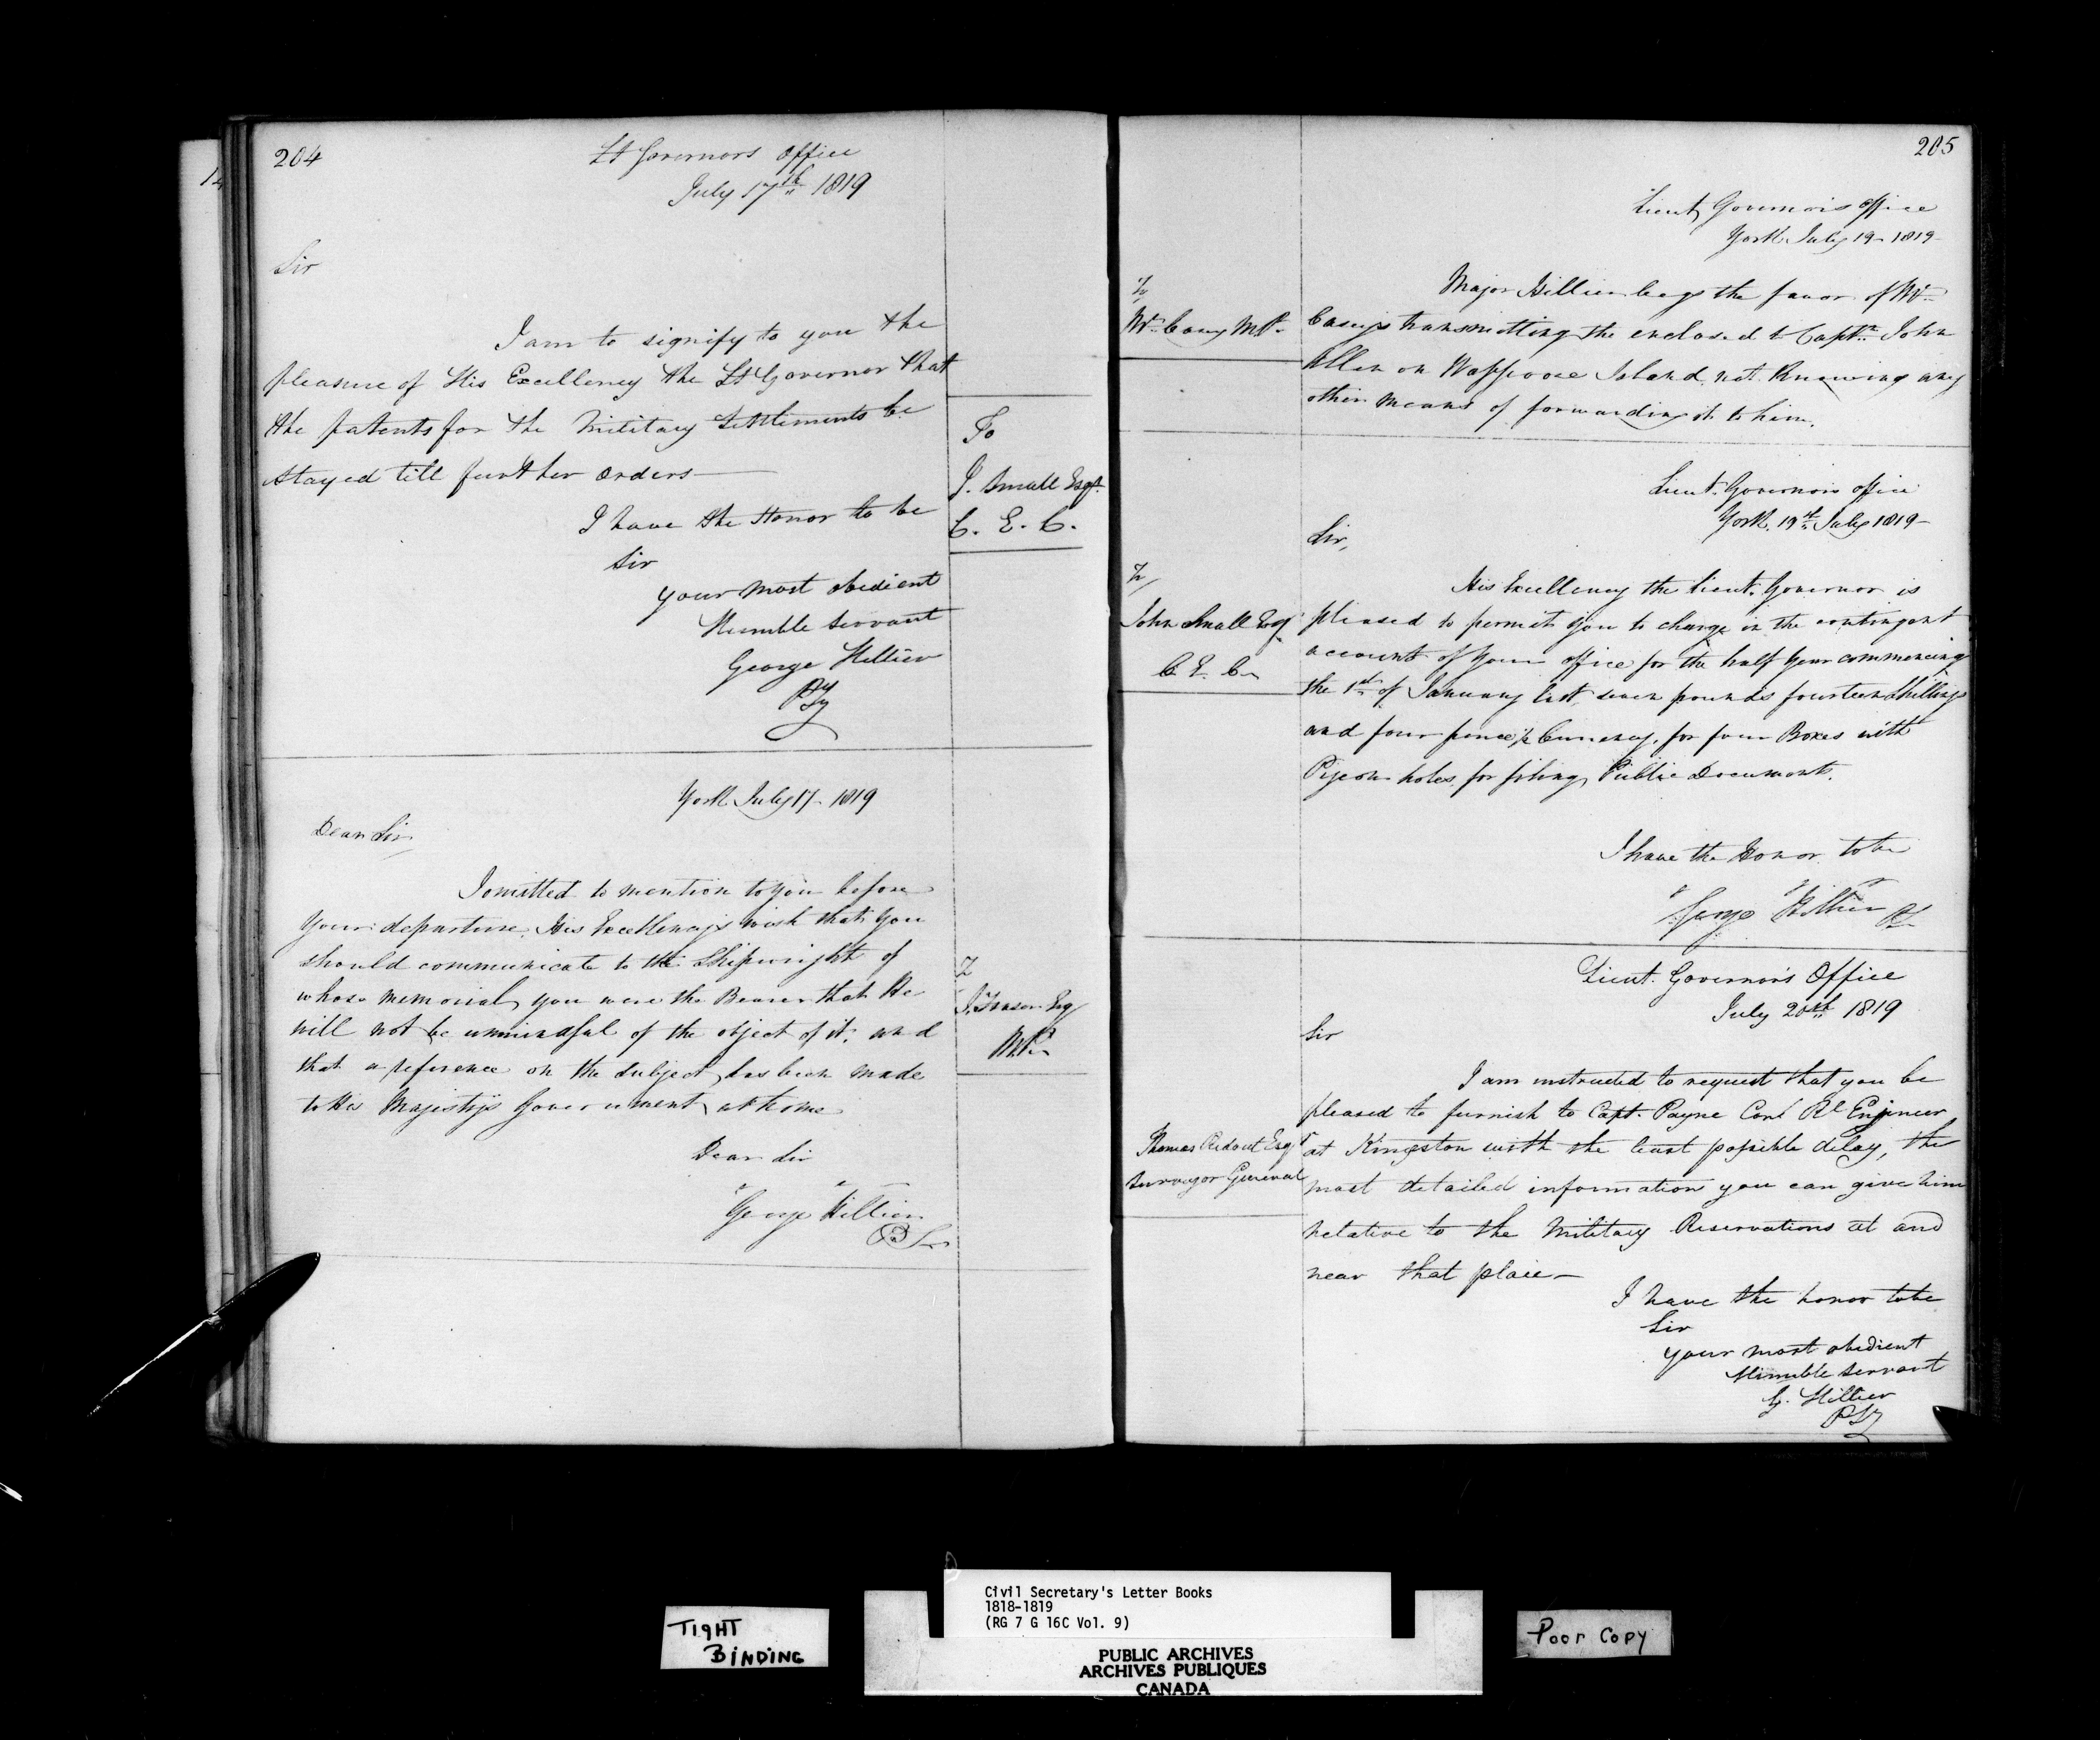 204
Lt Governors Office
July 17th 1819
Sir
I am to signify to you the
pleasure of His Excellency the Lt Governor that
the patents for the Military Settlements be
stayed till further orders—
I have the Honor to be
Sir
your most obedient
Humble Servant
George Hillier
PSy
To
J. Small Esqr.
C. E. C.
York July 17- 1819
Dear Sir
I omitted to mention to you before
your departure, His Excellency's wish that you
should communicate to the Shipwright of
whose memorial you were the Bearer that He
will not be unmindful of the object of it, and
that a reference on the subject has been made
to His Majesty's Government at home
Dear Sir
George Hillier
PS
To
Fraser Esq
M.P.
205
Lieut Governors Office
York July 19- 1819-
Major Hillier begs the favor of Mr
Casey's transmitting the enclosed to Captn John
Allen on Wappoose Island, not knowing any
other means of forwarding it to him.
To
Mr. Casey M.P.
Lieut. Governors Office
York, 19th July 1819-
Sir,
His Excellency the Lieut. Governor is
pleased to permit you to charge in the contingent
accounts of your office for the half year commencing
the 1st of January last, seven pounds fourteen Shillings
and four pence Currency, for four Boxes with
Pigeon holes for filing Public Documents.
I have the Honor to be
George Hillier PS
To
John Small Esqr
C. E. C.
Lieut. Governor's Office
July 20th 1819
Sir
I am instructed to request that you be
pleased to furnish to Capt. Payne Comg Rl Engineer
at Kingston with the least possible delay, the
most detailed information you can give him
relative to the Military Reservations at and
near that place—
I have the honor to be
Sir
your most obedient
Humble Servant
G. Hillier
PSy
Thomas Ridout Esqr
Surveyor General
TIGHT
BINDING
Civil Secretary's Letter Books
1818-1819
(RG 7 G 16C Vol. 9)
PUBLIC ARCHIVES
ARCHIVES PUBLIQUES
CANADA
Poor Copy